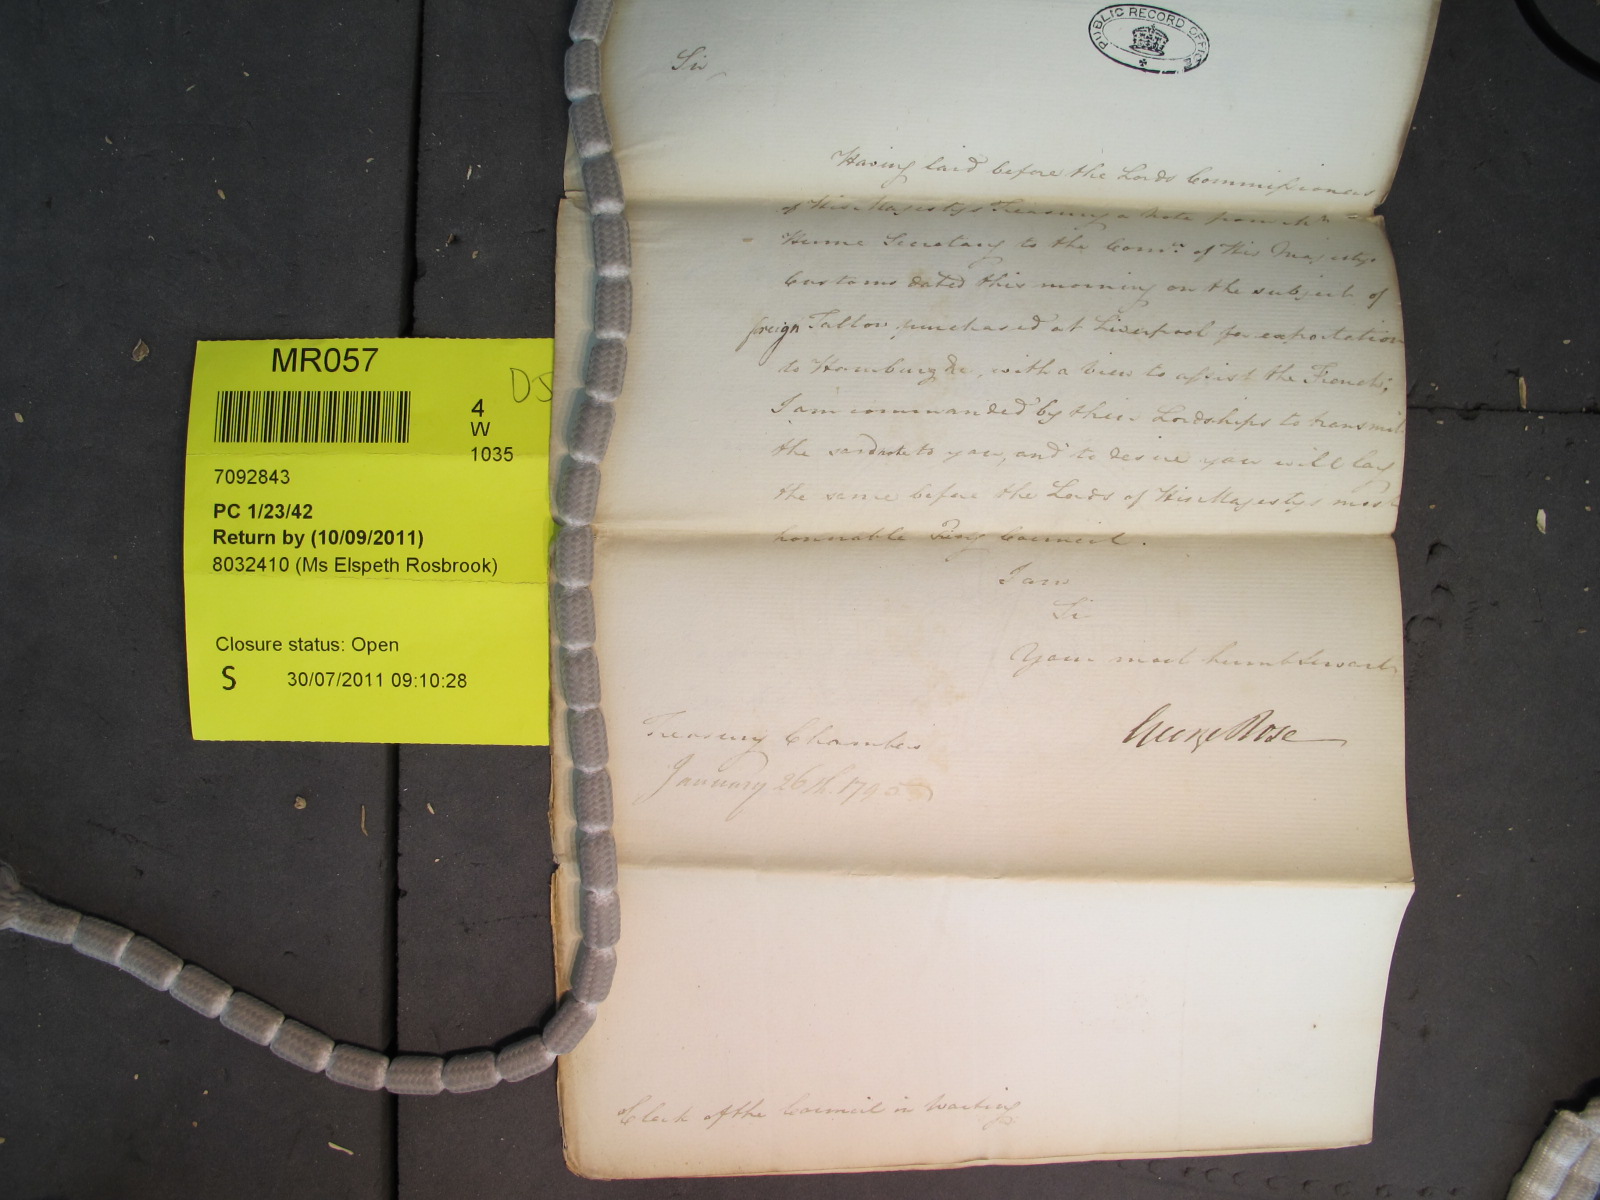 PUBLIC RECORD OFFICE
Sir
Having laid before the Lords Commissioners
of His Majestys Treasury a Note from Mr
Hume Secretary to the Comrs. of His Majestys
Customs dated this morning on the subject of
foreign Tallow purchased at Liverpool for exportation
to Hamburg &c, with a View to assist the French;
I am commanded by their Lordships to transmit
the said note to you, and to desire you will lay
the same before the Lords of His Majestys most
honnable Privy Council.
I am
Sir
Your most humble Servant
George Rose
Treasury Chambers
January 26th. 1795
Clerk of the Council in Waiting
MR057
DJ
4
W
1035
7092843
PC 1/23/42
Return by (10/09/2011)
8032410 (Ms Elspeth Rosbrook)
Closure status: Open
S 30/07/2011 09:10:28